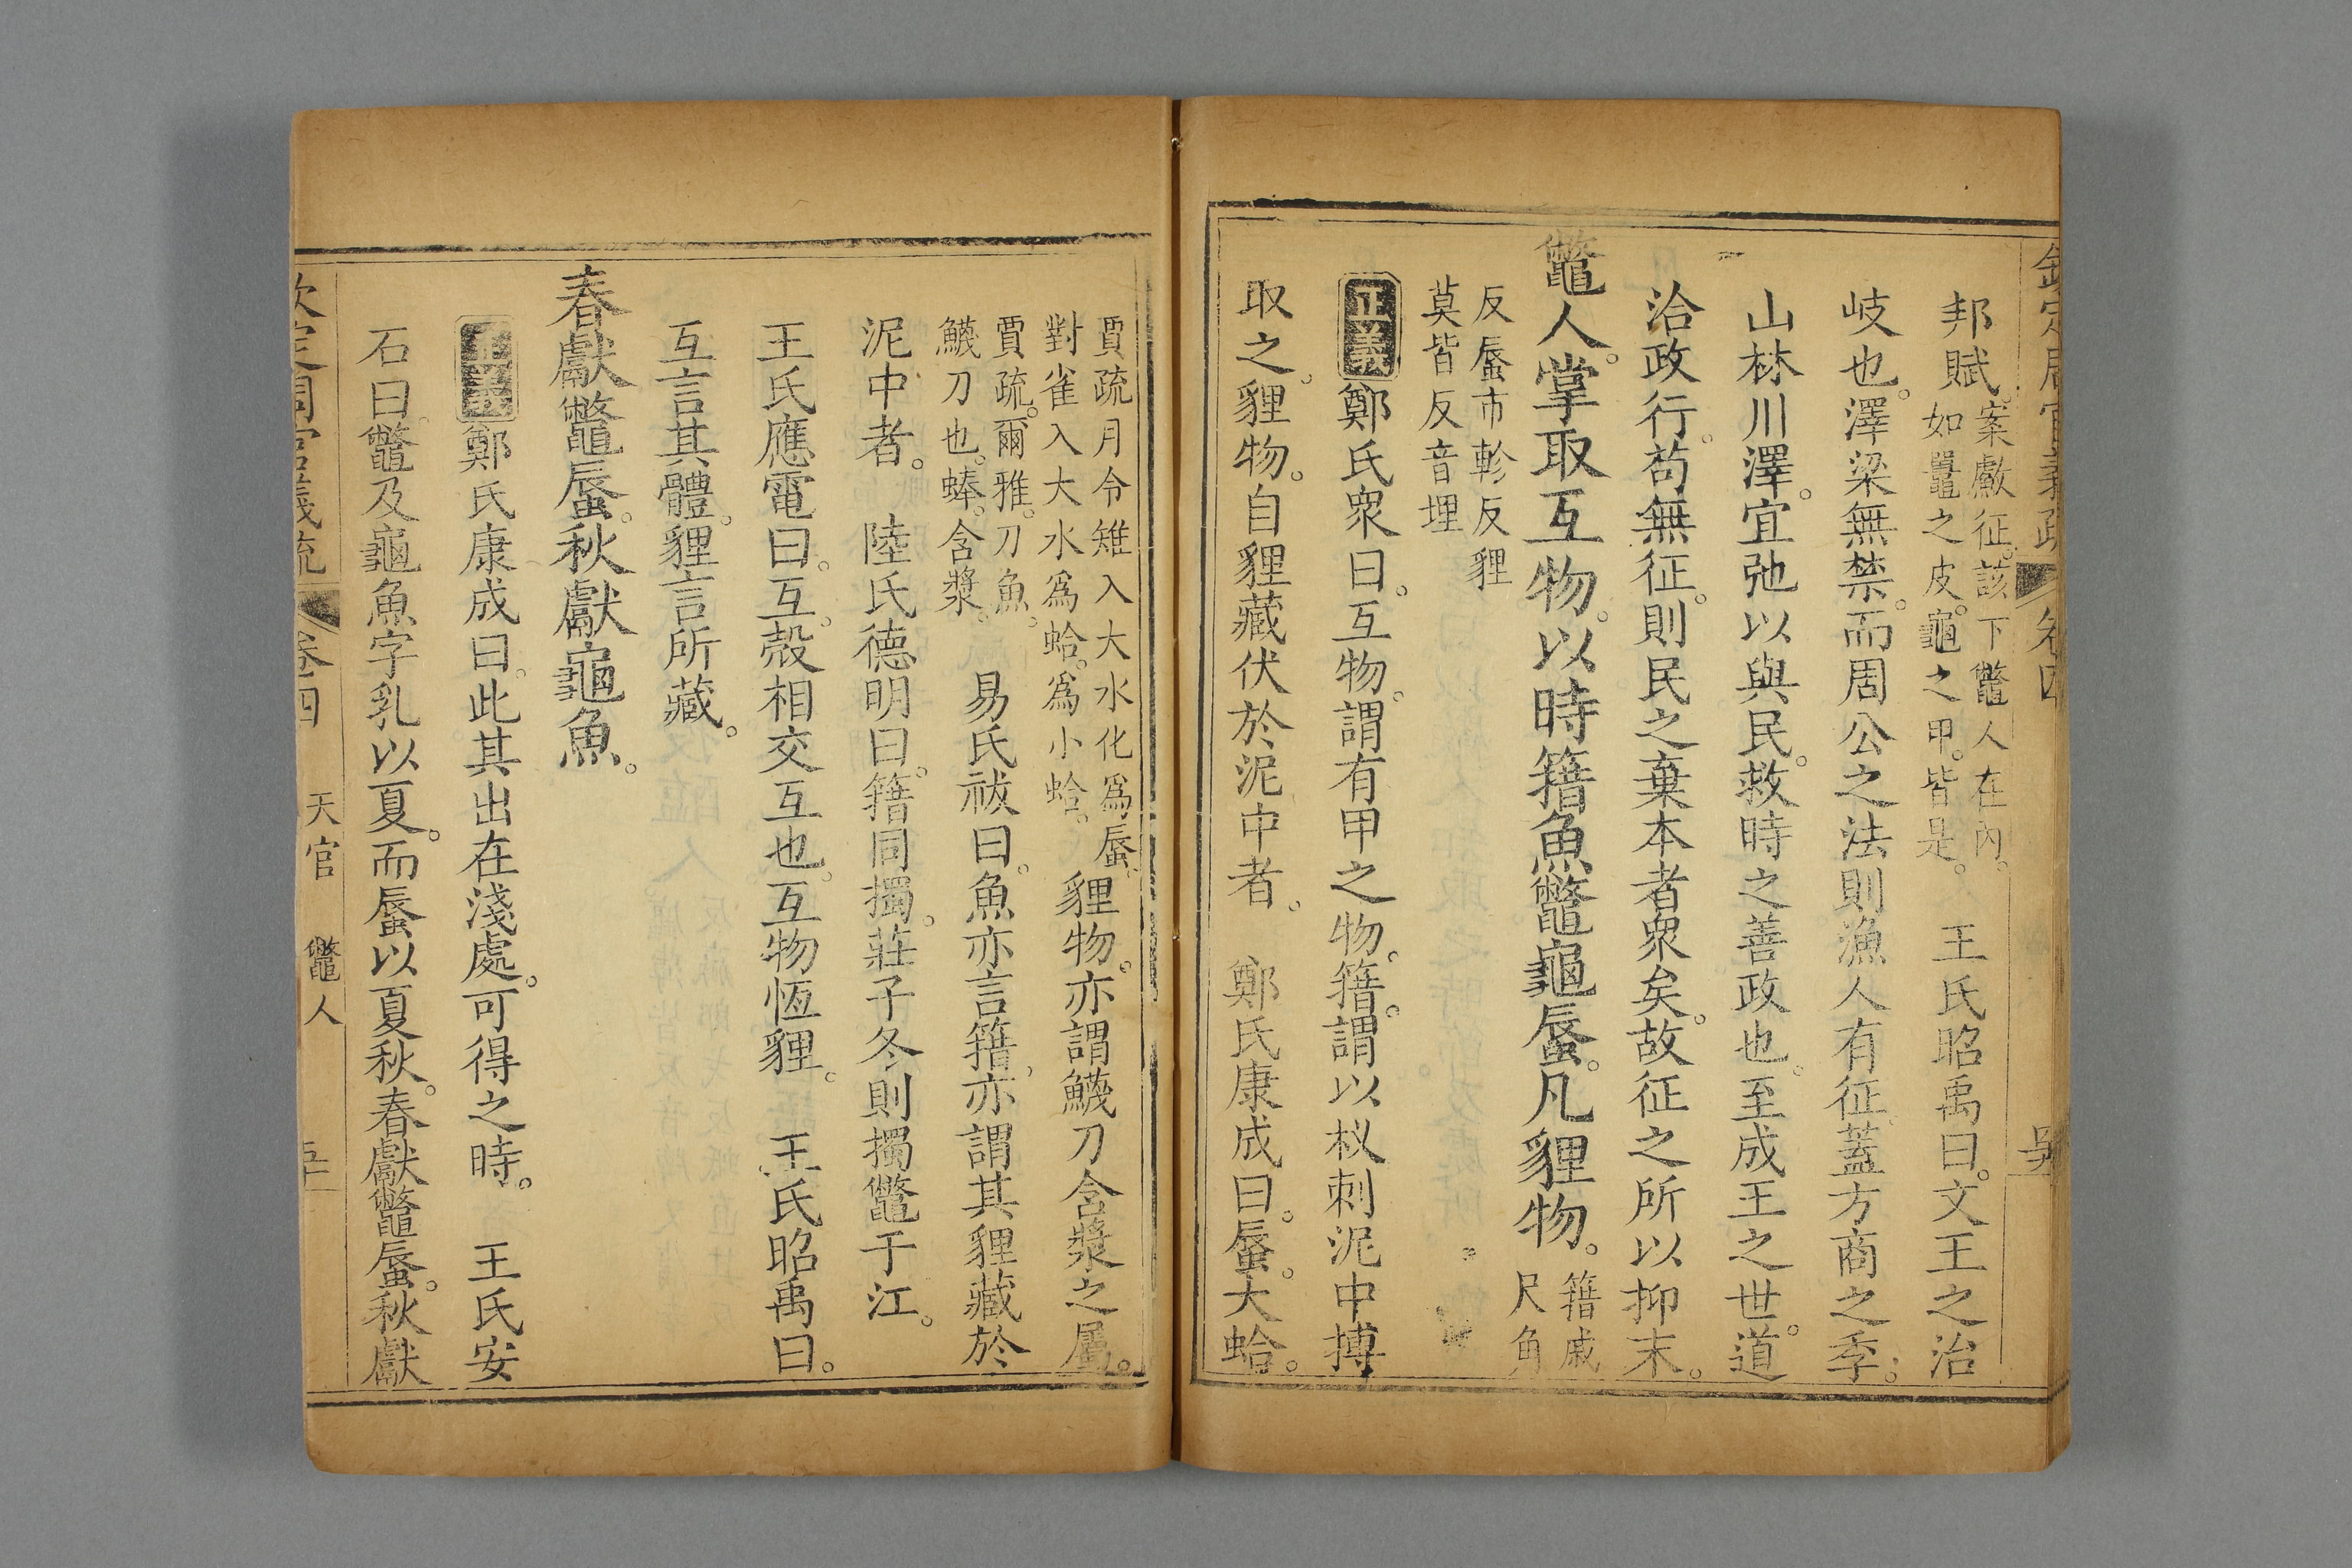 欽定周官義疏 卷四
邦賦。案䱷征。該下鼈人在內。
如鼉之皮。龜之甲。皆是。 王氏昭禹曰。文王之治
岐也。澤梁無禁。而周公之法則漁人有征蓋方商之季。
山林川澤。宜弛以與民。救時之善政也。至成王之世。道
洽政行。苟無征。則民之棄本者衆矣。故征之所以抑末。
鼈人。掌取互物。以時籍魚鼈龜蜃。凡貍物。籍戚
尺角
反蜃市軫反貍
莫皆反音埋
正義鄭氏衆曰。互物。謂有甲之物。籍。謂以杈刺泥中搏
取之。貍物。自貍藏伏於泥中者。 鄭氏康成曰。蜃。大蛤。
賈疏月令雉入大水化爲蜃。
對雀入大水爲蛤。爲小蛤。貍物。亦謂鱴刀含漿之屬。
賈疏。爾雅。刀魚。
鱴刀也。蜯。含漿。 易氏祓曰。魚亦言籍。亦謂其貍藏於
泥中者。 陸氏德明曰。籍同擉。莊子冬則擉鼈于江。
王氏應電曰。互。殼相交互也。互物恆貍。 王氏昭禹曰。
互言其體。貍言所藏。
春獻鼈蜃。秋獻龜魚。
正義鄭氏康成曰。此其出在淺處。可得之時。 王氏安
石曰。鼈及龜魚字乳以夏。而蜃以夏秋。春獻鼈蜃。秋獻
欽定周官義疏 卷四 天官 鼈人